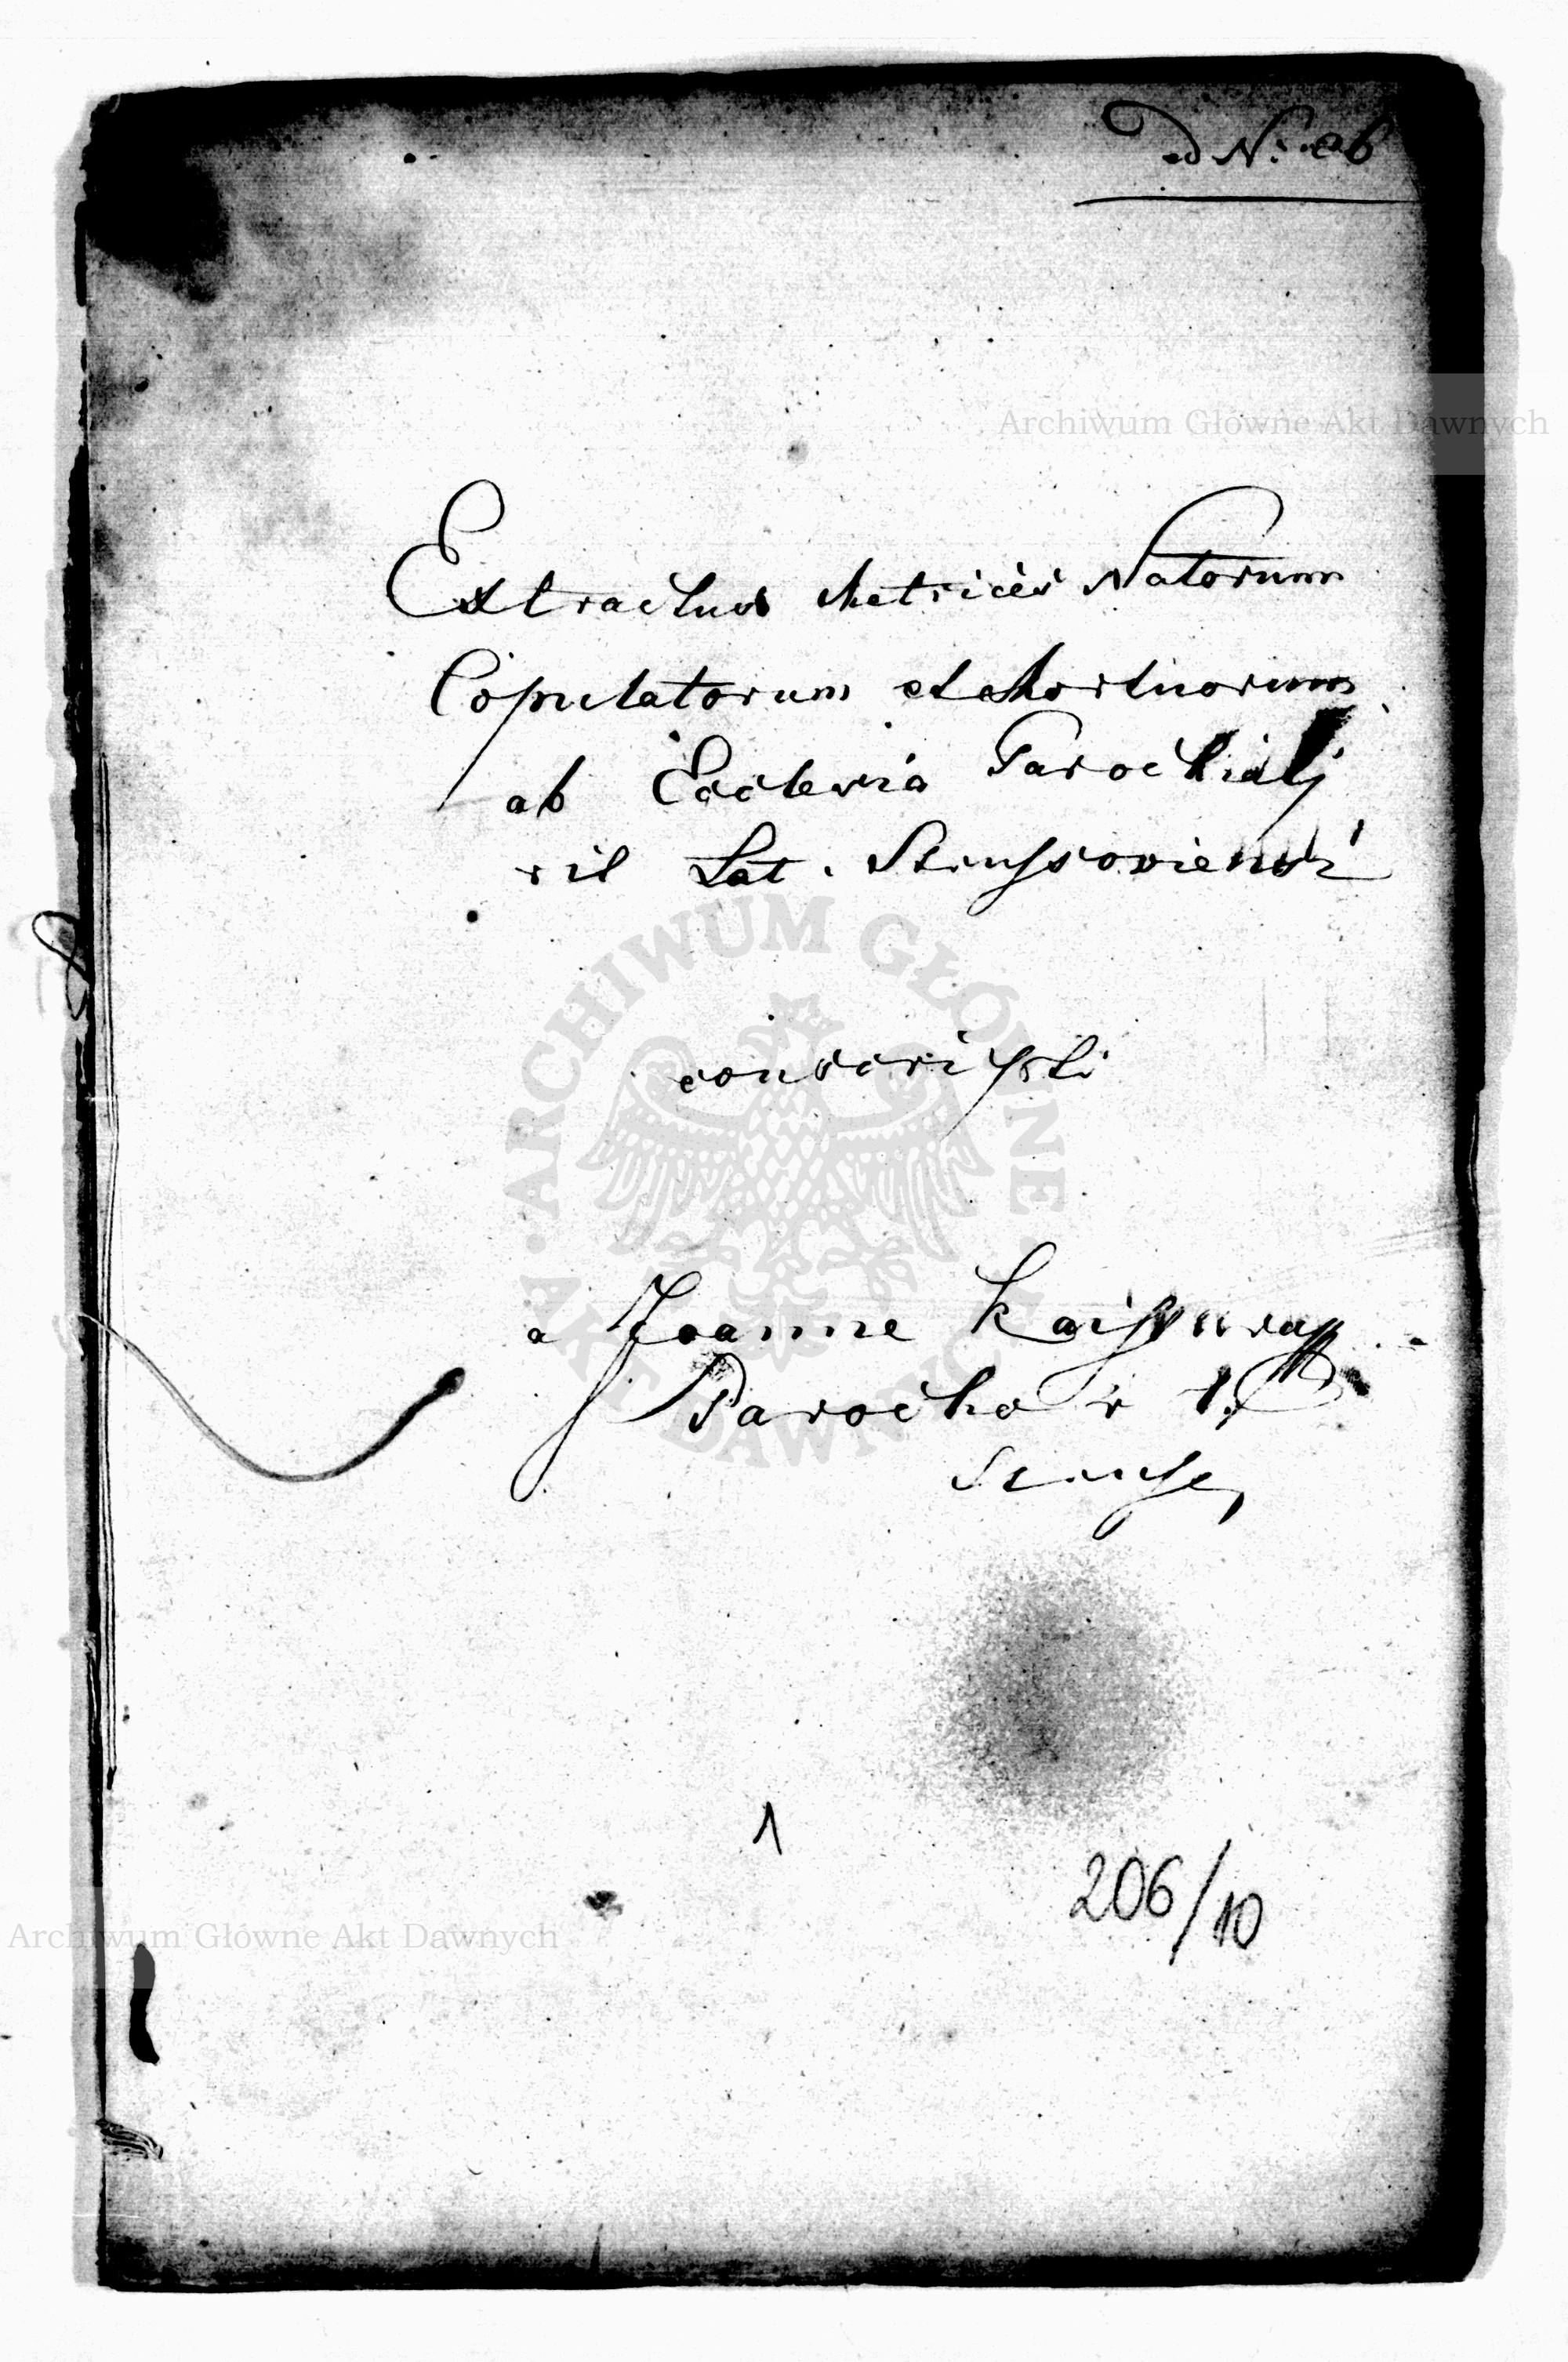 ad N:
Archiwum Główne Akt Dawnych
Extractus Metrices Natorum
Copulatorum et Mortuorum
ab Ecclesia Parochiali
rit Lat.
ARCHIWUM GŁÓWNE AKT DAWNYCH
conscripti
a Joanne
Parocho r l
1
206/10
Archiwum Główne Akt Dawnych